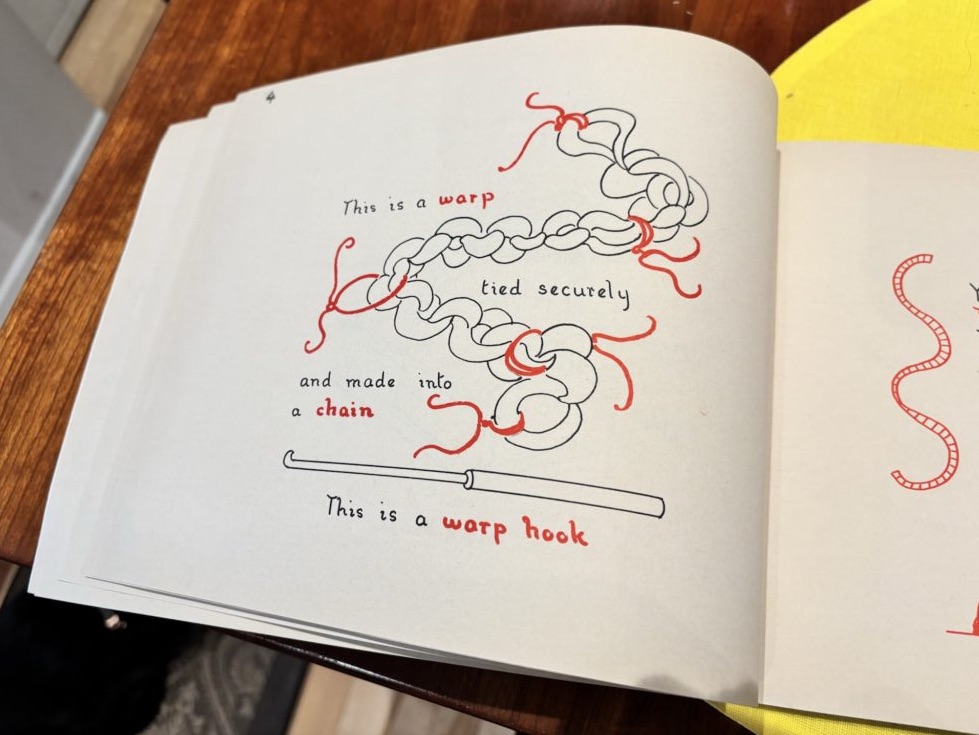 4
This is a warp
tied securely
and made into
a chain
This is a warp hook